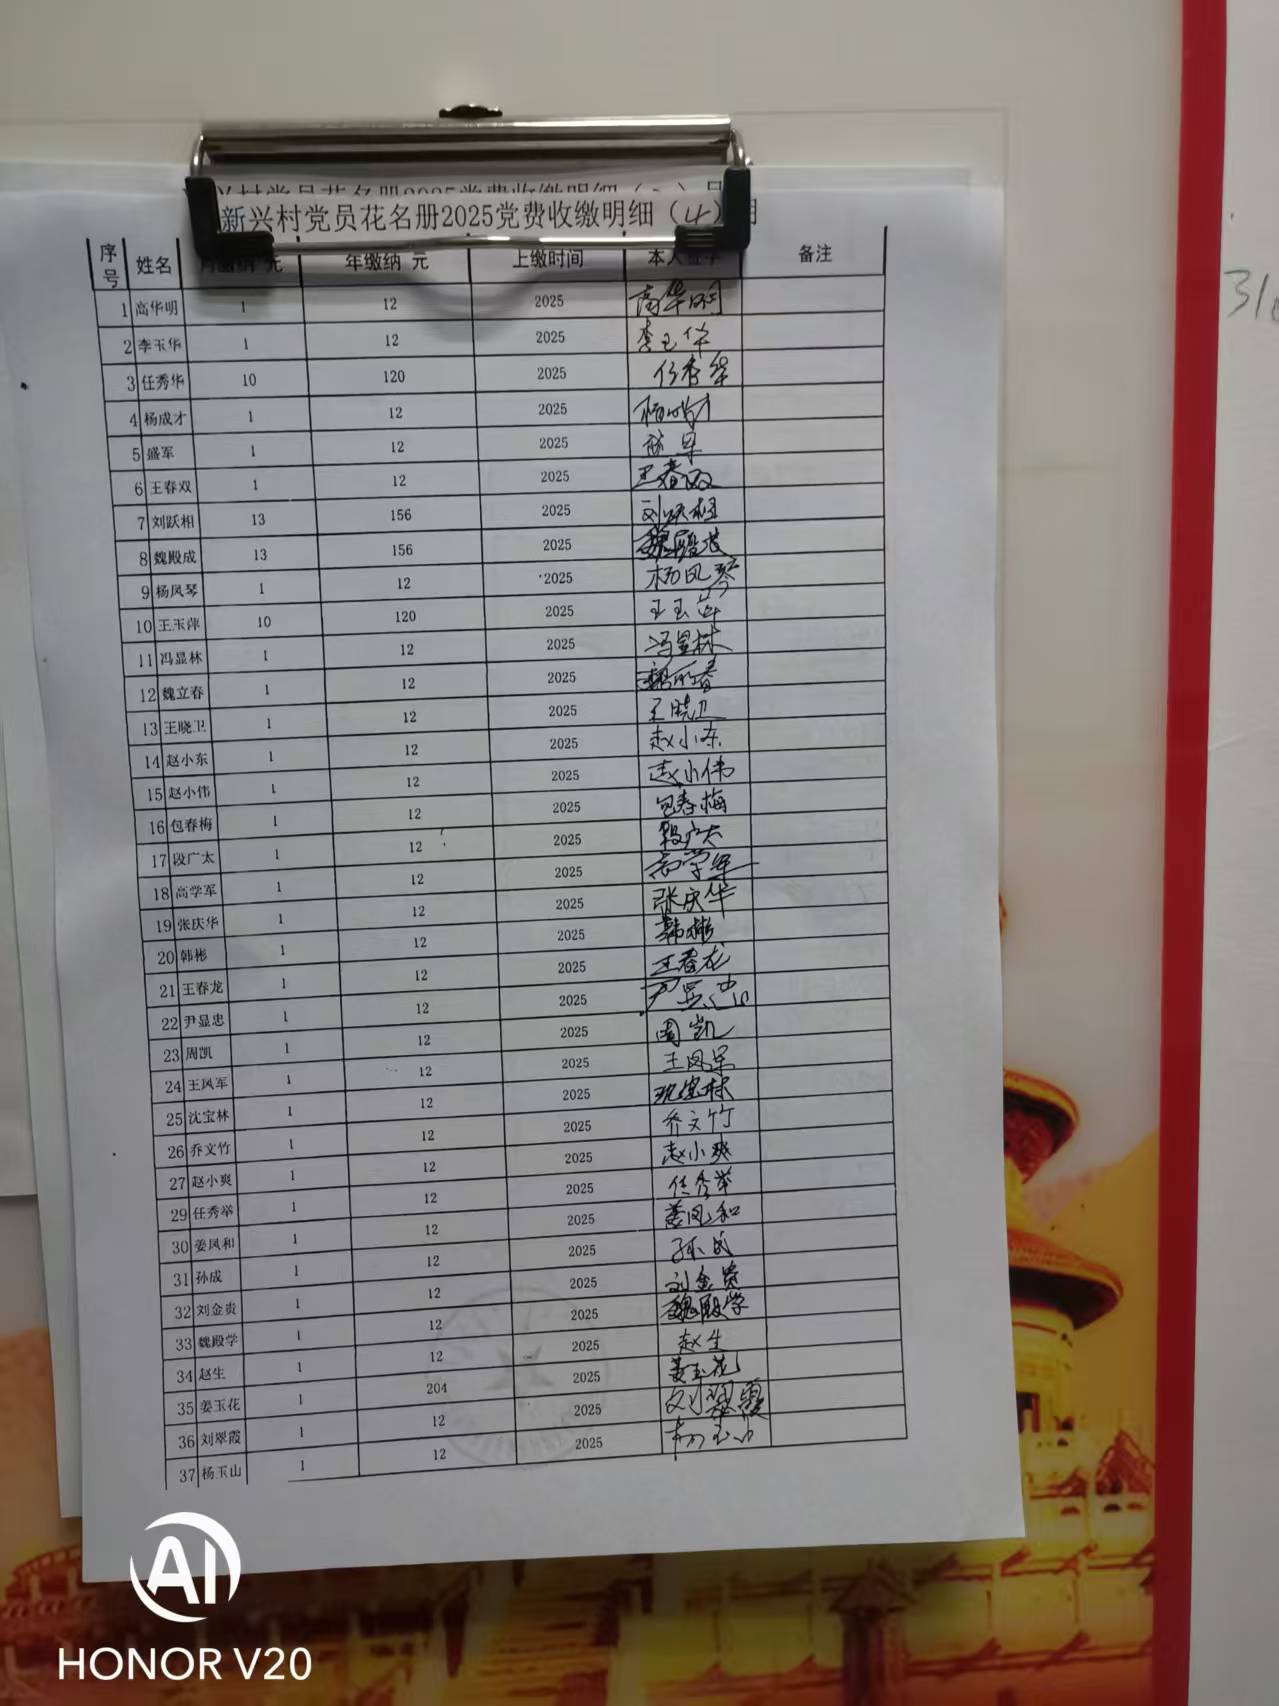 新兴村党员花名册2025党费收缴明细（4）月
序号 姓名 月缴纳 元 年缴纳 元 上缴时间 本人签字 备注
1 高华明 1 12 2025 高华明
2 李玉华 1 12 2025 李玉华
3 任秀华 10 120 2025 任秀华
4 杨成才 1 12 2025 杨成才
5 盛军 1 12 2025 盛军
6 王春双 1 12 2025 王春双
7 刘跃相 13 156 2025 刘跃相
8 魏殿成 13 156 2025 魏殿成
9 杨凤琴 1 12 2025 杨凤琴
10 王玉萍 10 120 2025 王玉萍
11 冯显林 1 12 2025 冯显林
12 魏立春 1 12 2025
13 王晓卫 1 12 2025 王晓卫
14 赵小东 1 12 2025 赵小东
15 赵小伟 1 12 2025 赵小伟
16 包春梅 1 12 2025 包春梅
17 段广太 1 12 2025 段广太
18 高学军 1 12 2025 高学军
19 张庆华 1 12 2025 张庆华
20 韩彬 1 12 2025 韩彬
21 王春龙 1 12 2025 王春龙
22 尹显忠 1 12 2025 尹显忠
23 周凯 1 12 2025 周凯
24 王凤军 1 12 2025 王凤军
25 沈宝林 1 12 2025 沈宝林
26 乔文竹 1 12 2025 乔文竹
27 赵小爽 1 12 2025 赵小爽
29 任秀举 1 12 2025 任秀举
30 姜凤和 1 12 2025 姜凤和
31 孙成 1 12 2025 孙成
32 刘金贵 1 12 2025 刘金贵
33 魏殿学 1 12 2025 魏殿学
34 赵生 1 12 2025 赵生
35 姜玉花 1 204 2025 姜玉花
36 刘翠霞 1 12 2025 刘翠霞
37 杨玉山 1 12 2025 杨玉山
AI
HONOR V20